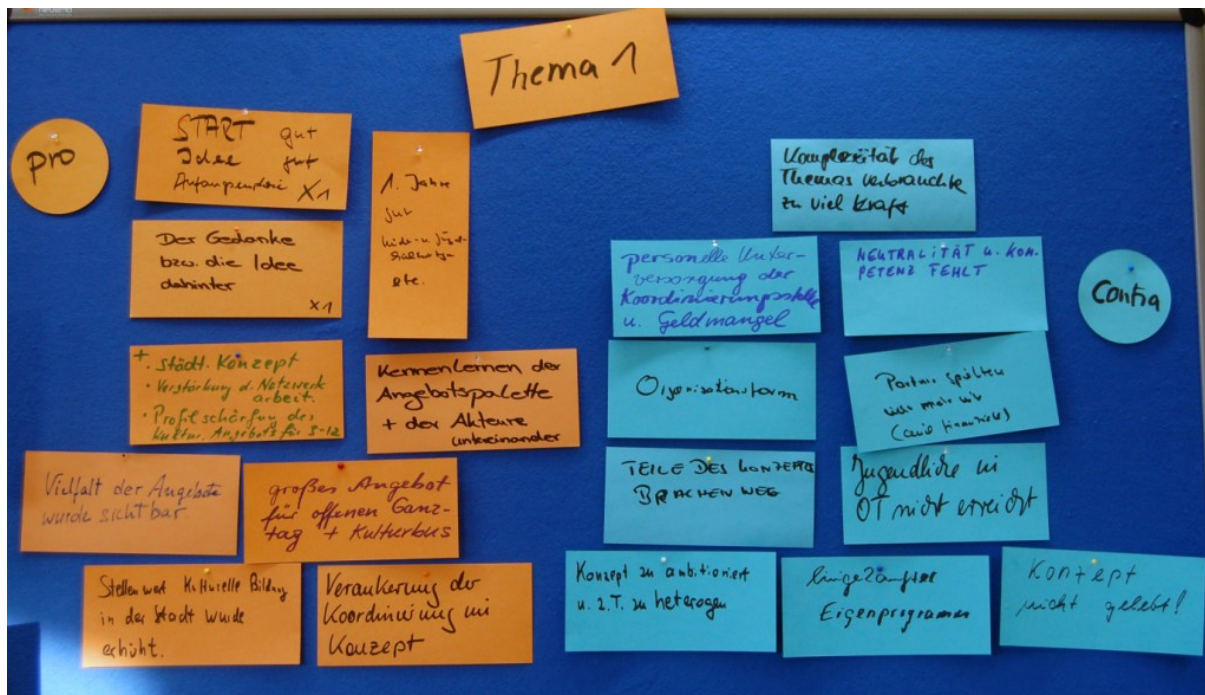 Thema 1
pro
START gut
Idee gut
X1
1. Jahre
gut
etc.
Der Gedanke
bzw. die Idee
dahinter
X1
+ . städt. Konzept
· Verstärkung d. Netzwerk
arbeit.
· Profilschärfung des
kultur. Angebots für 3-12
Kennenlernen der
Angebotspalette
+ der Akteure
untereinander
Vielfalt der Angebote
wurde sichtbar
großes Angebot
für offenen Ganz-
tag + Kulturbus
Stellenwert Kulturelle Bildung
in der Stadt wurde
erhöht.
Verankerung der
Koordinierung im
Konzept
Contra
Komplexität des
Themas verbrauchte
zu viel Kraft
personelle Unter-
versorgung der
Koordinierungsstelle
u. Geldmangel
NEUTRALITÄT u. KOM-
PETENZ FEHLT
Organisationsform
Partner
(auch finanziell)
TEILE DES KONZEPTES
BRACHEN WEG
Jugendliche in
OT nicht erreicht
Konzept zu ambitioniert
u. z.T. zu heterogen
Eigenprogramm
Konzept
nicht gelebt!